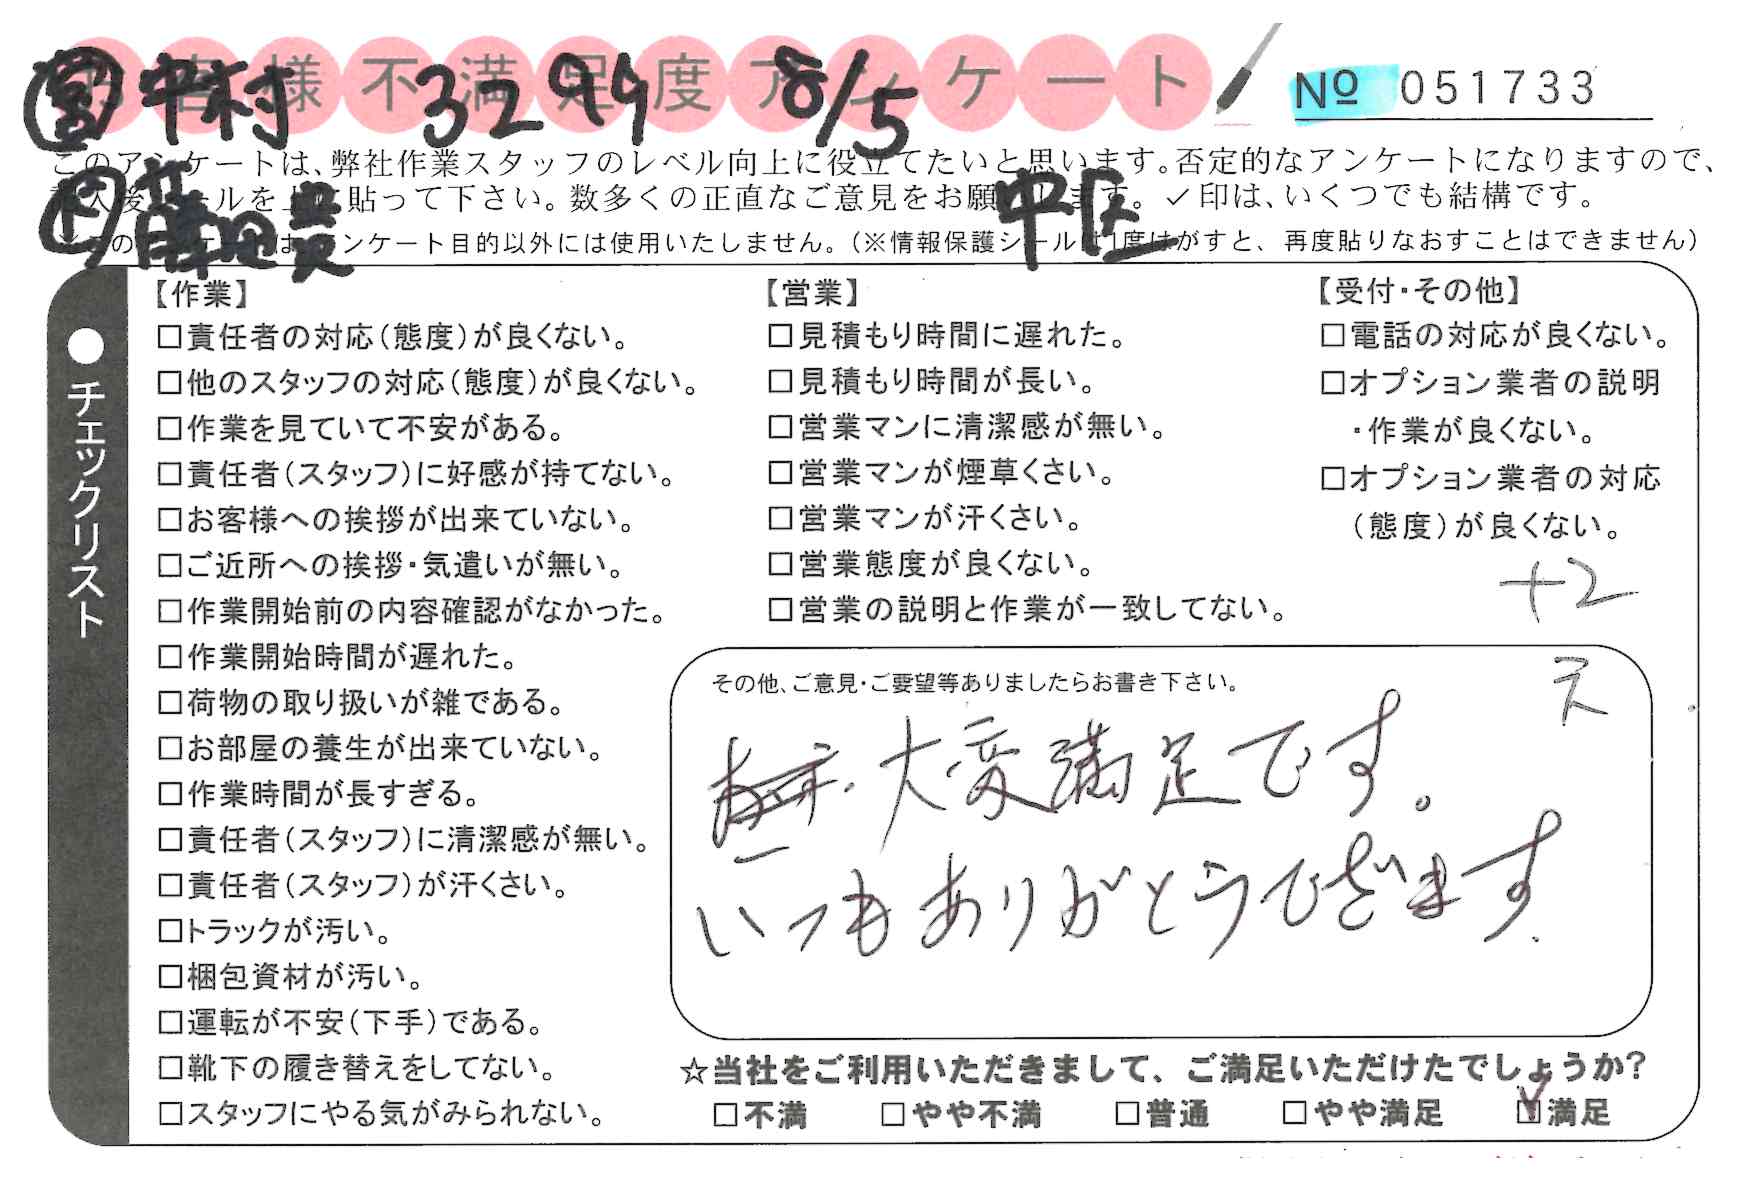 お客様不満足度アンケート
中村 3299 8/5
№ 051733
このアンケートは、弊社作業スタッフのレベル向上に役立てたいと思います。否定的なアンケートになりますので、
後 ールを上に貼って下さい。数多くの正直なご意見をお願いします。✓印は、いくつでも結構です。
中区
アンケート目的以外には使用いたしません。(※情報保護シールは1度はがすと、再度貼りなおすことはできません)
●チェックリスト
【作業】
□責任者の対応(態度)が良くない。
□他のスタッフの対応(態度)が良くない。
□作業を見ていて不安がある。
□責任者(スタッフ)に好感が持てない。
□お客様への挨拶が出来ていない。
□ご近所への挨拶・気遣いが無い。
□作業開始前の内容確認がなかった。
□作業開始時間が遅れた。
□荷物の取り扱いが雑である。
□お部屋の養生が出来ていない。
□作業時間が長すぎる。
□責任者(スタッフ)に清潔感が無い。
□責任者(スタッフ)が汗くさい。
□トラックが汚い。
□梱包資材が汚い。
□運転が不安(下手)である。
□靴下の履き替えをしてない。
□スタッフにやる気がみられない。
【営業】
□見積もり時間に遅れた。
□見積もり時間が長い。
□営業マンに清潔感が無い。
□営業マンが煙草くさい。
□営業マンが汗くさい。
□営業態度が良くない。
□営業の説明と作業が一致してない。
【受付・その他】
□電話の対応が良くない。
□オプション業者の説明
・作業が良くない。
□オプション業者の対応
(態度)が良くない。
+2
その他、ご意見・ご要望等ありましたらお書き下さい。
大変満足です。
いつもありがとうございます
☆当社をご利用いただきまして、ご満足いただけたでしょうか?
□不満 □やや不満 □普通 □やや満足 ☑満足